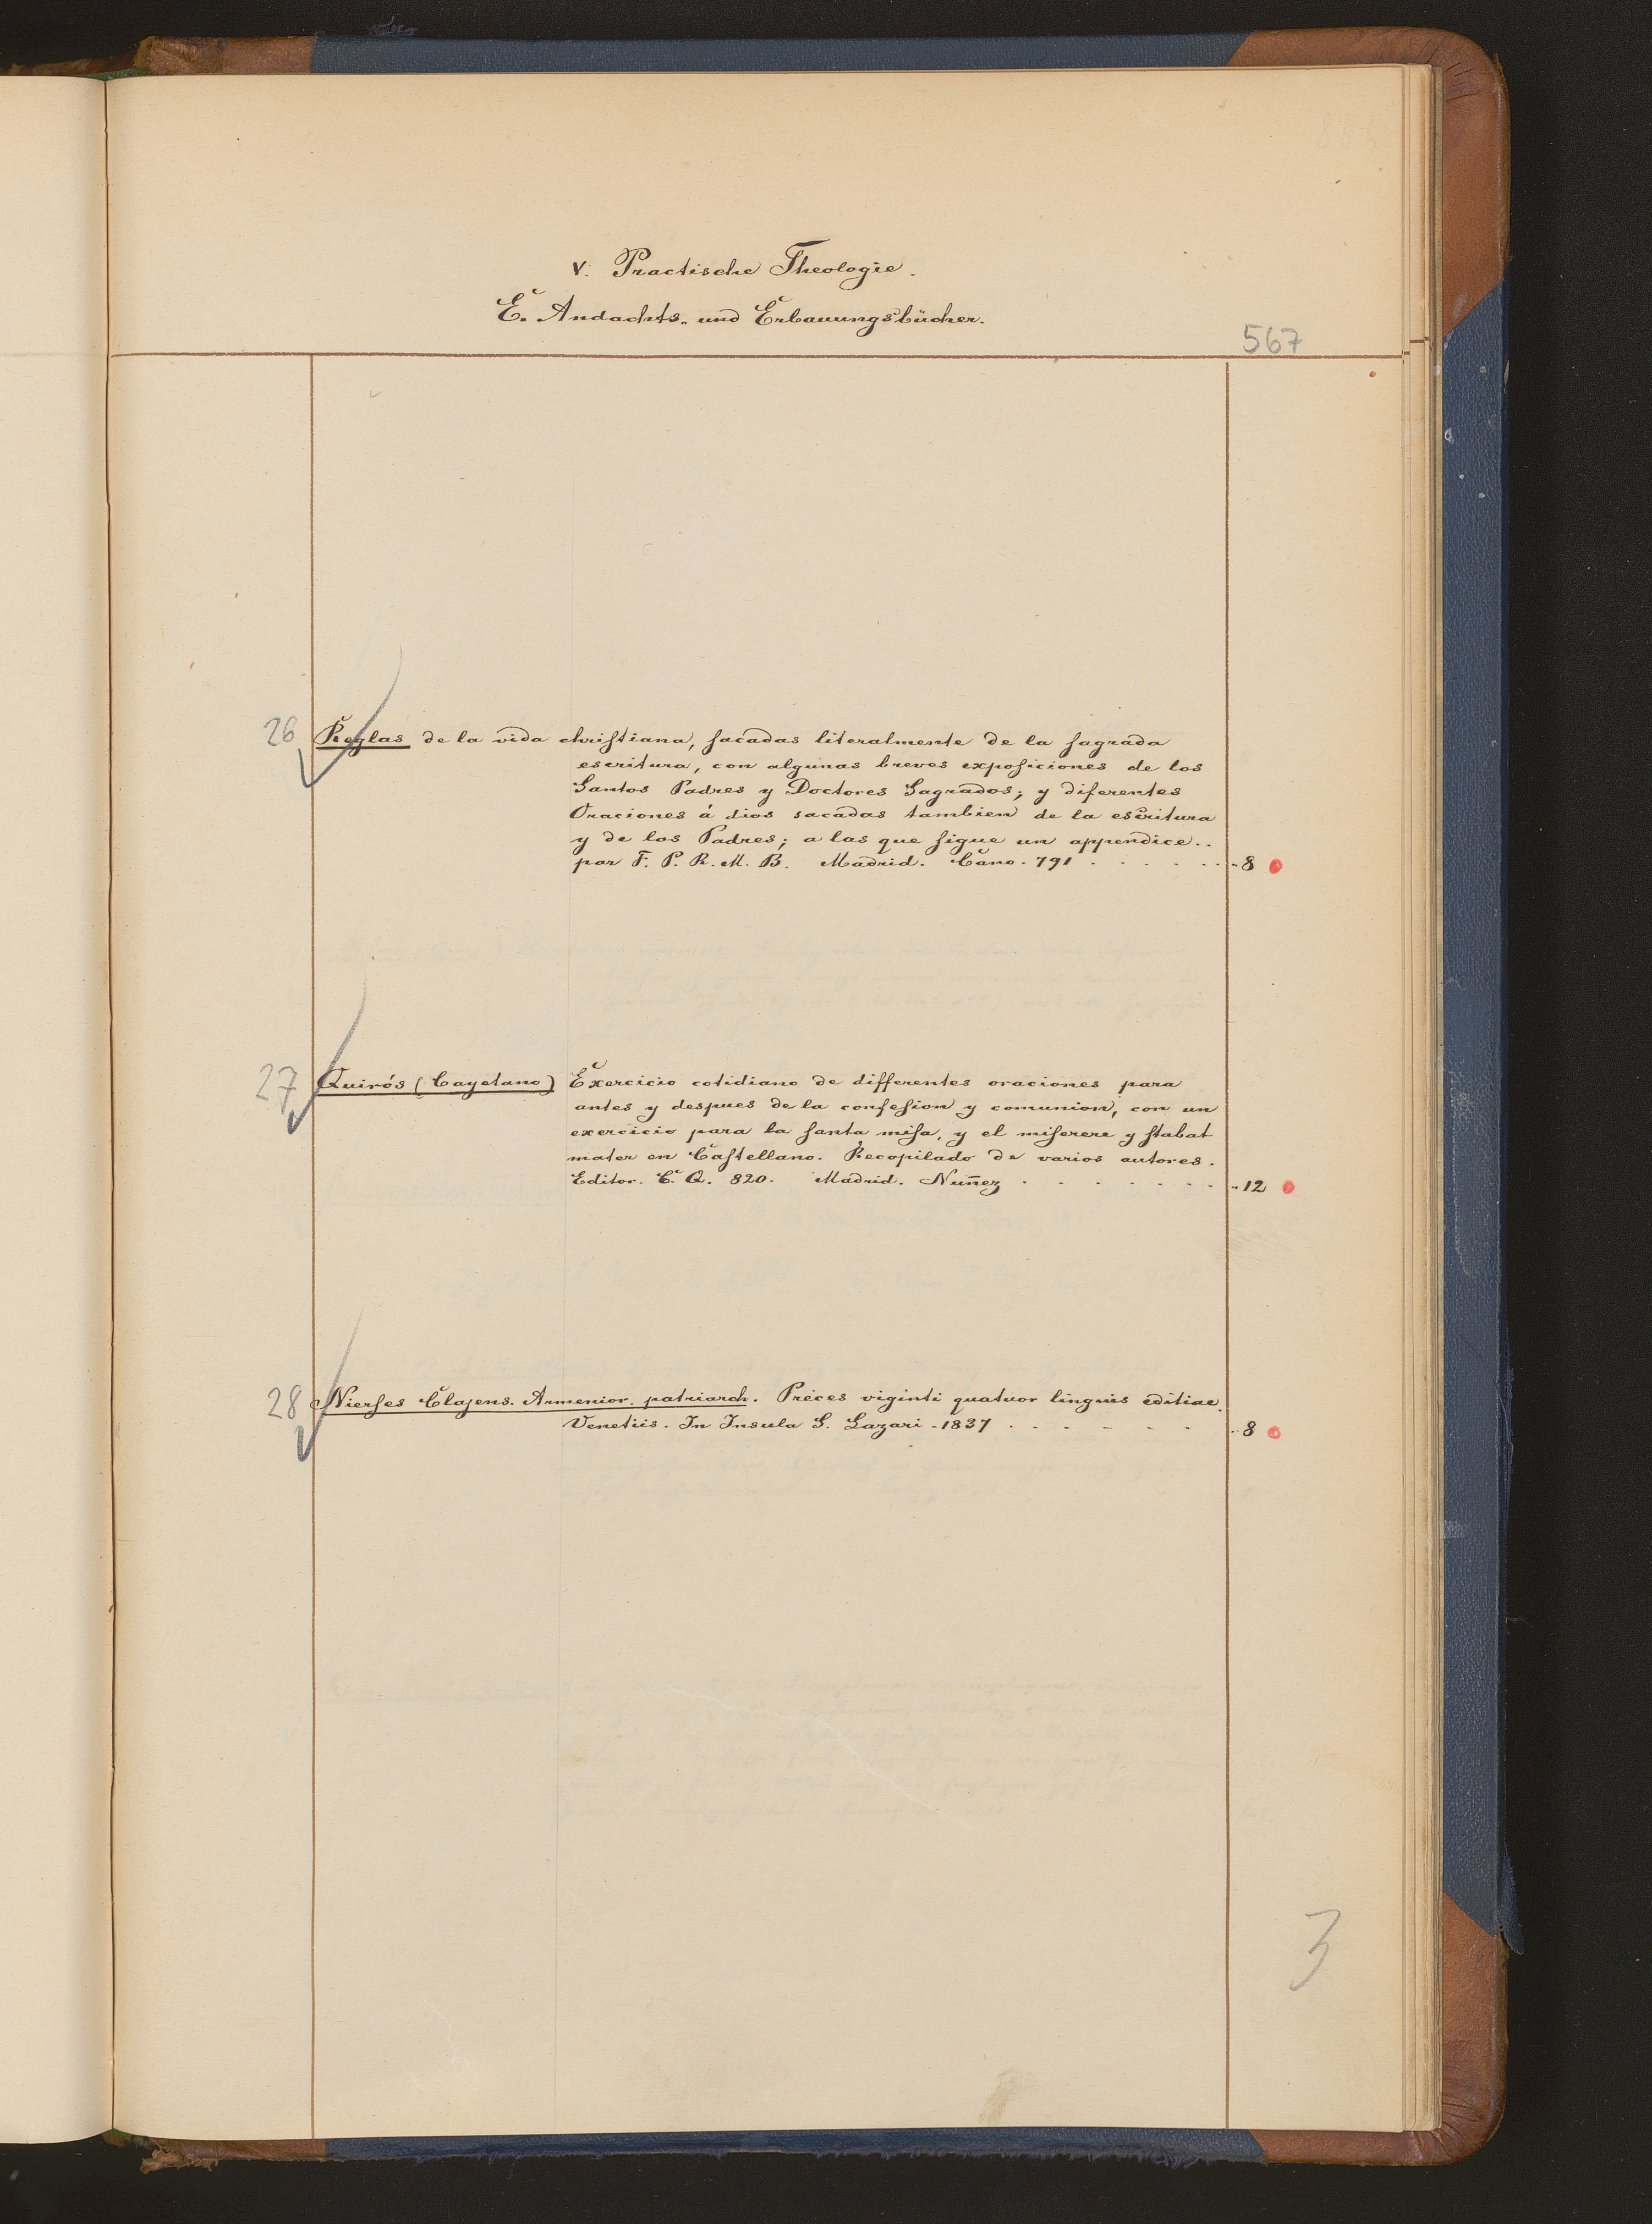 V. Practische Theologie.
E. Andachts- und Erbauungsbücher.
567
26 Reglas de la vida christiana, sacadas literalmente de la sagrada
escritura, con algunas breves exposiciones de los
Santos Padres y Doctores Sagrados; y diferentes
Oraciones á dios sacadas tambien de la escritura
y de los Padres; a las que sigue un appendice..
par F. P. R. M. B. Madrid. Cano. 791 . . . . . . 8
27 Quirós (Cayetano) Exercicio cotidiano de differentes oraciones para
antes y despues de la confesion y comunion, con un
exercicio para la santa misa, y el miserere y stabat
mater en Castellano. Recopilado de varios autores.
Editor. C. Q. 820. Madrid. Nuñez . . . . . . . 12
28 Nierses Clajens. Armenior. patriarch. Preces viginti quatuor linguis editiae.
Venetiis. In Insula S. Lazari - 1837 . . . . . . . 8
3